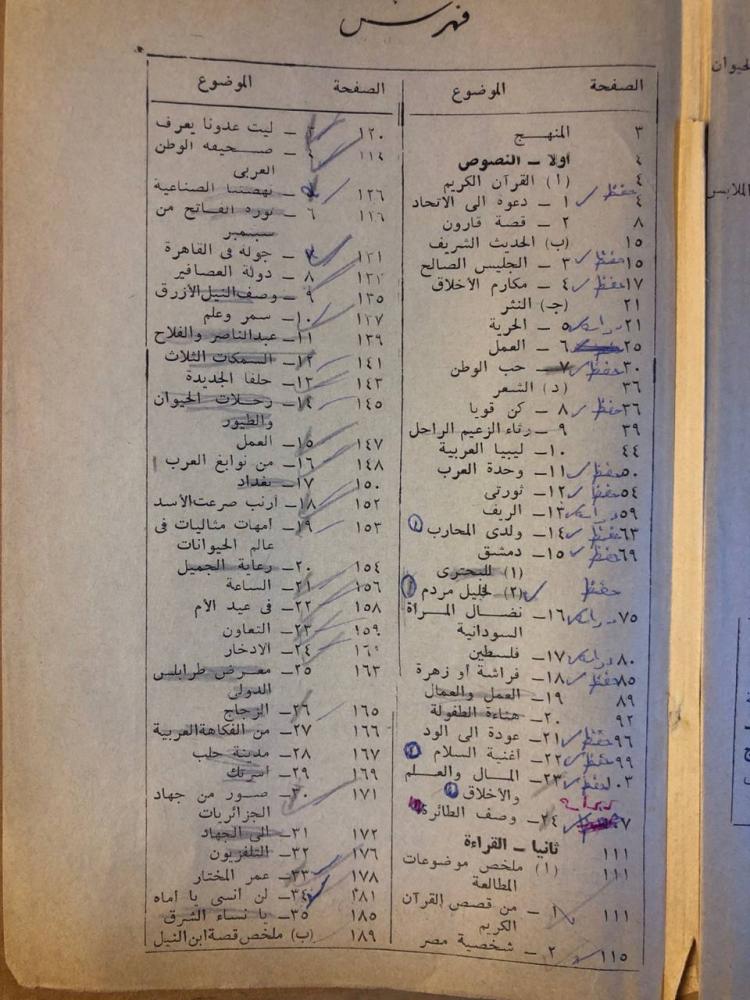 فهرس
الصفحة الموضوع
٣ المنهج
٤ أولا ــ النصوص
٤ (١) القرآن الكريم
٤ حفظ ١ ــ دعوة الى الاتحاد
٨ ٢ ــ قصة قارون
١٥ (ب) الحديث الشريف
١٥ حفظ ٣ ــ الجليس الصالح
١٧ حفظ ٤ ــ مكارم الأخلاق
٢١ (جـ) النثر
٢١ دراسة ٥ ــ الحرية
٢٥ ٦ ــ العمل
٣٠ حفظ ٧ ــ حب الوطن
٣٦ (د) الشعر
٣٦ حفظ ٨ ــ كن قويا
٣٩ ٩ ــ رثاء الزعيم الراحل
٤٤ ١٠ــ ليبيا العربية
٥٠ حفظ ١١ــ وحدة العرب
٥٤ حفظ ١٢ــ ثورتى
٥٩ دراسة ١٣ــ الريف
٦٣ حفظ ١٤ــ ولدى المحارب
٦٩ حفظ ١٥ــ دمشق
(١) للبحترى
حفظ (٢) لخليل مردم
٧٥ دراسة ١٦ــ نضال المرأة
السودانية
٨٠ دراسة ١٧ــ فلسطين
٨٥ حفظ ١٨ــ فراشة أو زهرة
٨٩ ١٩ــ العمل والعمال
٩٢ ٢٠ــ هناءة الطفولة
٩٦ حفظ ٢١ــ عودة الى الود
٩٩ حفظ ٢٢ــ أغنية السلام
٠٣ حفظ ٢٣ــ المال والعلم
والأخلاق
٧ ٢٤ــ وصف الطائرة
١١١ ثانيا ــ القراءة
١١١ (١) ملخص موضوعات
المطالعة
١١١ ١ــ من قصص القرآن
الكريم
١١٥ ٢ ــ شخصية مصر
الصفحة الموضوع
١٢٠ ٣ ــ ليت عدونا يعرف
١١٤ ٤ ــ صحيفة الوطن
العربى
١٢٦ ــ نهضتنا الصناعية
١١٦ ٦ ــ ثورة الفاتح من
سبتمبر
١٣١ ٧ ــ جولة فى القاهرة
١٣٢ ٨ ــ دولة العصافير
١٣٥ ٩ ــ وصف النيل الأزرق
١٣٧ ١٠ــ سمر وعلم
١٣٩ ١١ــ عبدالناصر والفلاح
١٤١ ١٢ــ السمكات الثلاث
١٤٣ ١٣ــ حلفا الجديدة
١٤٥ ١٤ــ رحلات الحيوان
والطيور
١٤٧ ١٥ــ العمل
١٤٨ ١٦ــ من نوابغ العرب
١٥٠ ١٧ــ بغداد
١٥٢ ١٨ــ أرنب صرعت الأسد
١٥٣ ١٩ــ أمهات مثاليات فى
عالم الحيوانات
١٥٤ ٢٠ــ رعاية الجميل
١٥٦ ٢١ــ الساعة
١٥٨ ٢٢ــ فى عيد الأم
١٥٩ ٢٣ــ التعاون
١٦٠ ٢٤ــ الادخار
١٦٣ ٢٥ــ معرض طرابلس
الدولى
١٦٥ ٢٦ــ الزجاج
١٦٦ ٢٧ــ من الفكاهة العربية
١٦٧ ٢٨ــ مدينة حلب
١٦٩ ٢٩ــ أسرتك
١٧١ ٣٠ــ صور من جهاد
الجزائريات
١٧٢ ٣١ــ الى الجهاد
١٧٦ ٣٢ــ التلفزيون
١٧٨ ٣٣ــ عمر المختار
١٨١ ٣٤ــ لن أنسى يا أماه
١٨٥ ٣٥ــ يا نساء الشرق
١٨٩ (ب) ملخص قصة ابن النيل